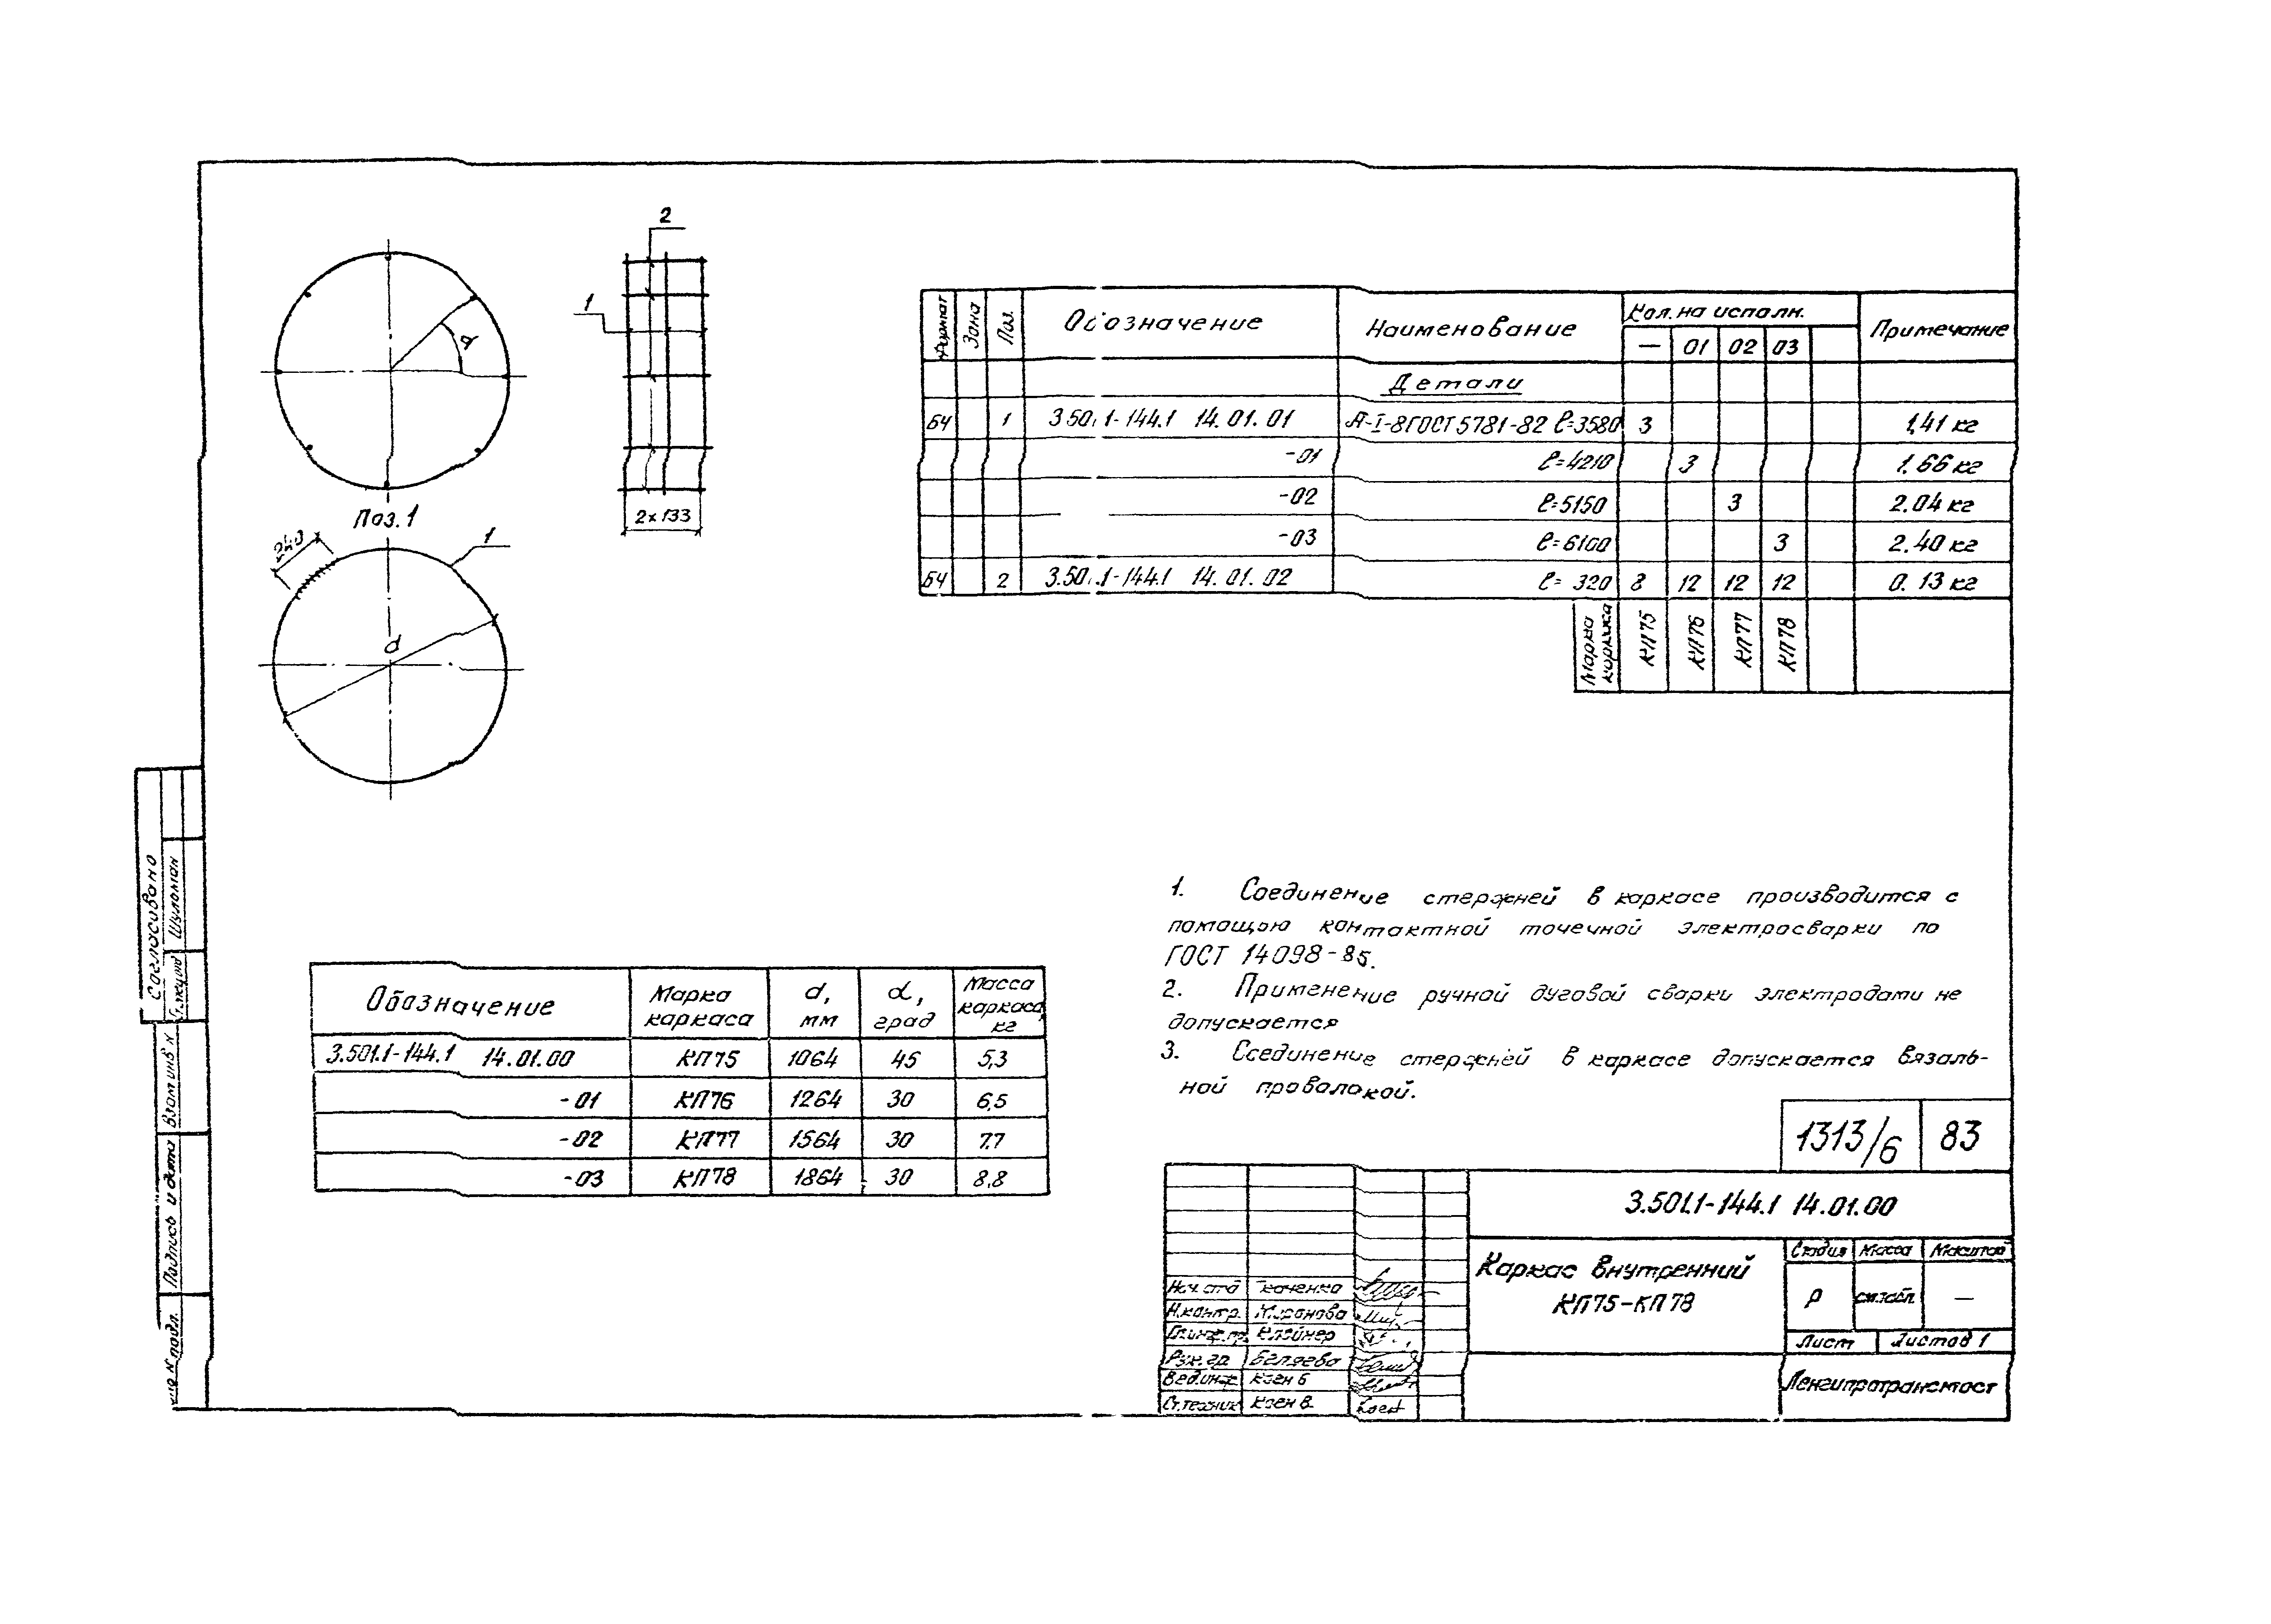 2
1
α
Поз. 1
2×133
240
1
d
Формат Зона Поз. Обозначение Наименование Кол. на исполн. Примечание
— 01 02 03
Детали
БЧ 1 3.501.1-144.1 14.01.01 А-I-8 ГОСТ 5781-82 ℓ=3580 3 1,41 кг
-01 ℓ=4210 3 1.66 кг
-02 ℓ=5150 3 2.04 кг
-03 ℓ=6100 3 2.40 кг
БЧ 2 3.501.1-144.1 14.01.02 ℓ= 320 8 12 12 12 0.13 кг
Марка каркаса КП75 КП76 КП77 КП78
1. Соединение стержней в каркасе производится с
помощью контактной точечной электросварки по
ГОСТ 14098-85.
2. Применение ручной дуговой сварки электродами не
допускается
3. Соединение стержней в каркасе допускается вязаль-
ной проволокой.
Обозначение Марка каркаса d, мм α, град Масса каркаса, кг
3.501.1-144.1 14.01.00 КП75 1064 45 5,3
-01 КП76 1264 30 6,5
-02 КП77 1564 30 7.7
-03 КП78 1864 30 8,8
1313/6 83
3.501.1-144.1 14.01.00
Каркас внутренний
КП75-КП78
Стадия Масса Масштаб
Р см.табл. —
Лист Листов 1
Ленгипротрансмост
Нач.отд Ткаченко
Н.контр. Миронова
Гл.инж.пр. Клейнер
Рук.гр. Беляева
Вед.инж. Коен Б
Ст.техник Коен В.
Согласовано
Шульман
Взам инв N
Подпись и дата
Инв N подл.